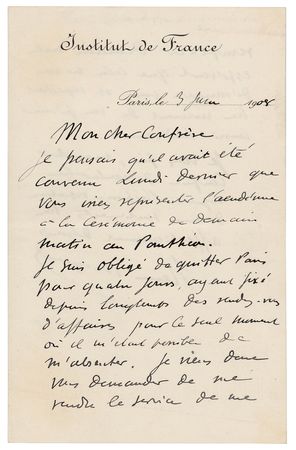 Institut de France
Paris, le 3 Juin 1908
Mon cher Confrère
Je pensais qu'il avait été
convenu Lundi dernier que
vous iriez représenter l'académie
à la Cérémonie de demain
matin au Panthéon.
Je suis obligé de quitter Paris
pour quatre jours, ayant fixé
depuis longtemps des rendez-vous
d'affaires pour le seul moment
où il m'était possible de
m'absenter. Je viens donc
vous demander de me
rendre le service de me